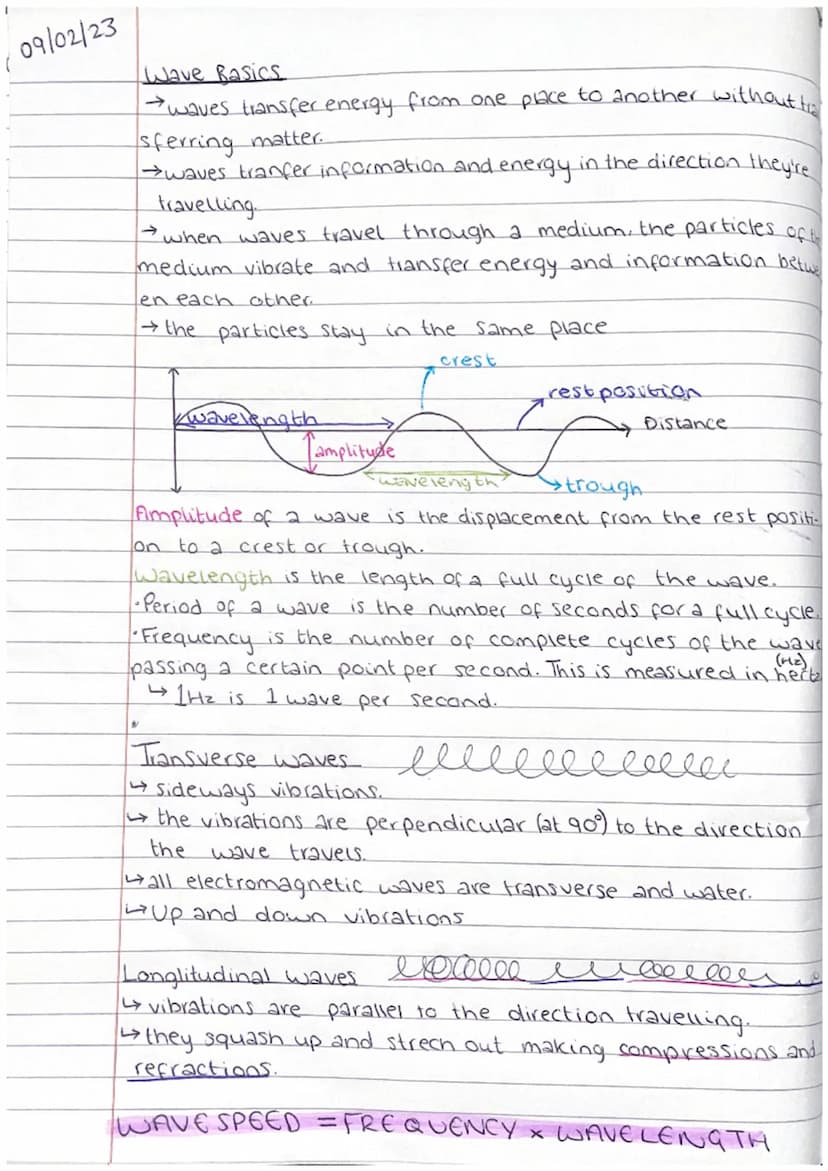 09/02/23
Wave Basics
→waves transfer energy from one place to another without tra
sferring matter.
→waves tranfer information and energy in the direction they're
travelling.
→when waves travel through a medium, the particles of th
medium vibrate and transfer energy and information betwe
en each other.
→the particles stay in the same place
crest
rest position
wavelength
Distance
amplitude
wavelength
trough
Amplitude of a wave is the displacement from the rest positi-
on to a crest or trough.
Wavelength is the length of a full cycle of the wave.
·Period of a wave is the number of seconds for a full cycle.
·Frequency is the number of complete cycles of the wave
(Hz)
passing a certain point per second. This is measured in hertz
↳ 1Hz is 1 wave per second.
Transverse waves
↳ sideways vibrations.
↳ the vibrations are perpendicular (at 90°) to the direction
the wave travels.
↳all electromagnetic waves are transverse and water.
↳Up and down vibrations
Longlitudinal waves
↳ vibrations are parallel to the direction travelling.
↳they squash up and strech out making compressions and
refractions.
WAVE SPEED = FREQUENCY × WAVELENGTH